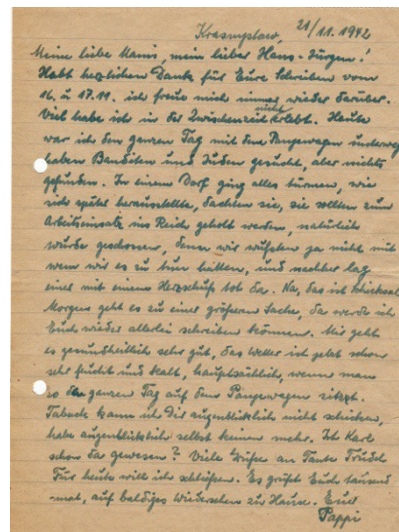 Krasnystaw, 21/11.1942
Meine liebe Mami, mein lieber Hans-Jürgen!
Habt herzlichen Dank für Eure Schreiben vom
16. u. 17.11. ich freue mich immer wieder darüber.
Viel habe ich in der Zwischenzeit nicht erlebt. Heute
war ich den ganzen Tag mit dem Pangewagen unterwegs
haben Banditen und Juden gesucht, aber nichts
gefunden. In einem Dorf ging alles türmen, wie
sich später herausstellte, dachten sie, sie sollten zum
Arbeitseinsatz ins Reich geholt werden, natürlich
wurde geschossen, denn wir wußten ja nicht mit
wem wir es zu tun hätten, und nachher lag
einer mit einem Herzschuß tot da. Na, das ist Schicksal
Morgen geht es zu einer größeren Sache, da werde ich
Euch wieder allerlei schreiben können. Mir geht
es gesundheitlich sehr gut, das Wetter ist jetzt schon
sehr feucht und kalt, hauptsächlich, wenn man
so den ganzen Tag auf dem Pangewagen sitzt.
Taback kann ich Dir augenblicklich nicht schicken,
habe augenblicklich selbst keinen mehr. Ist Karl
schon da gewesen? Viele Grüße an Tante Trudel
Für heute will ich schließen. Es grüßt Euch tausend
-mal, auf baldiges Wiedersehen zu Hause. Euer
Pappi